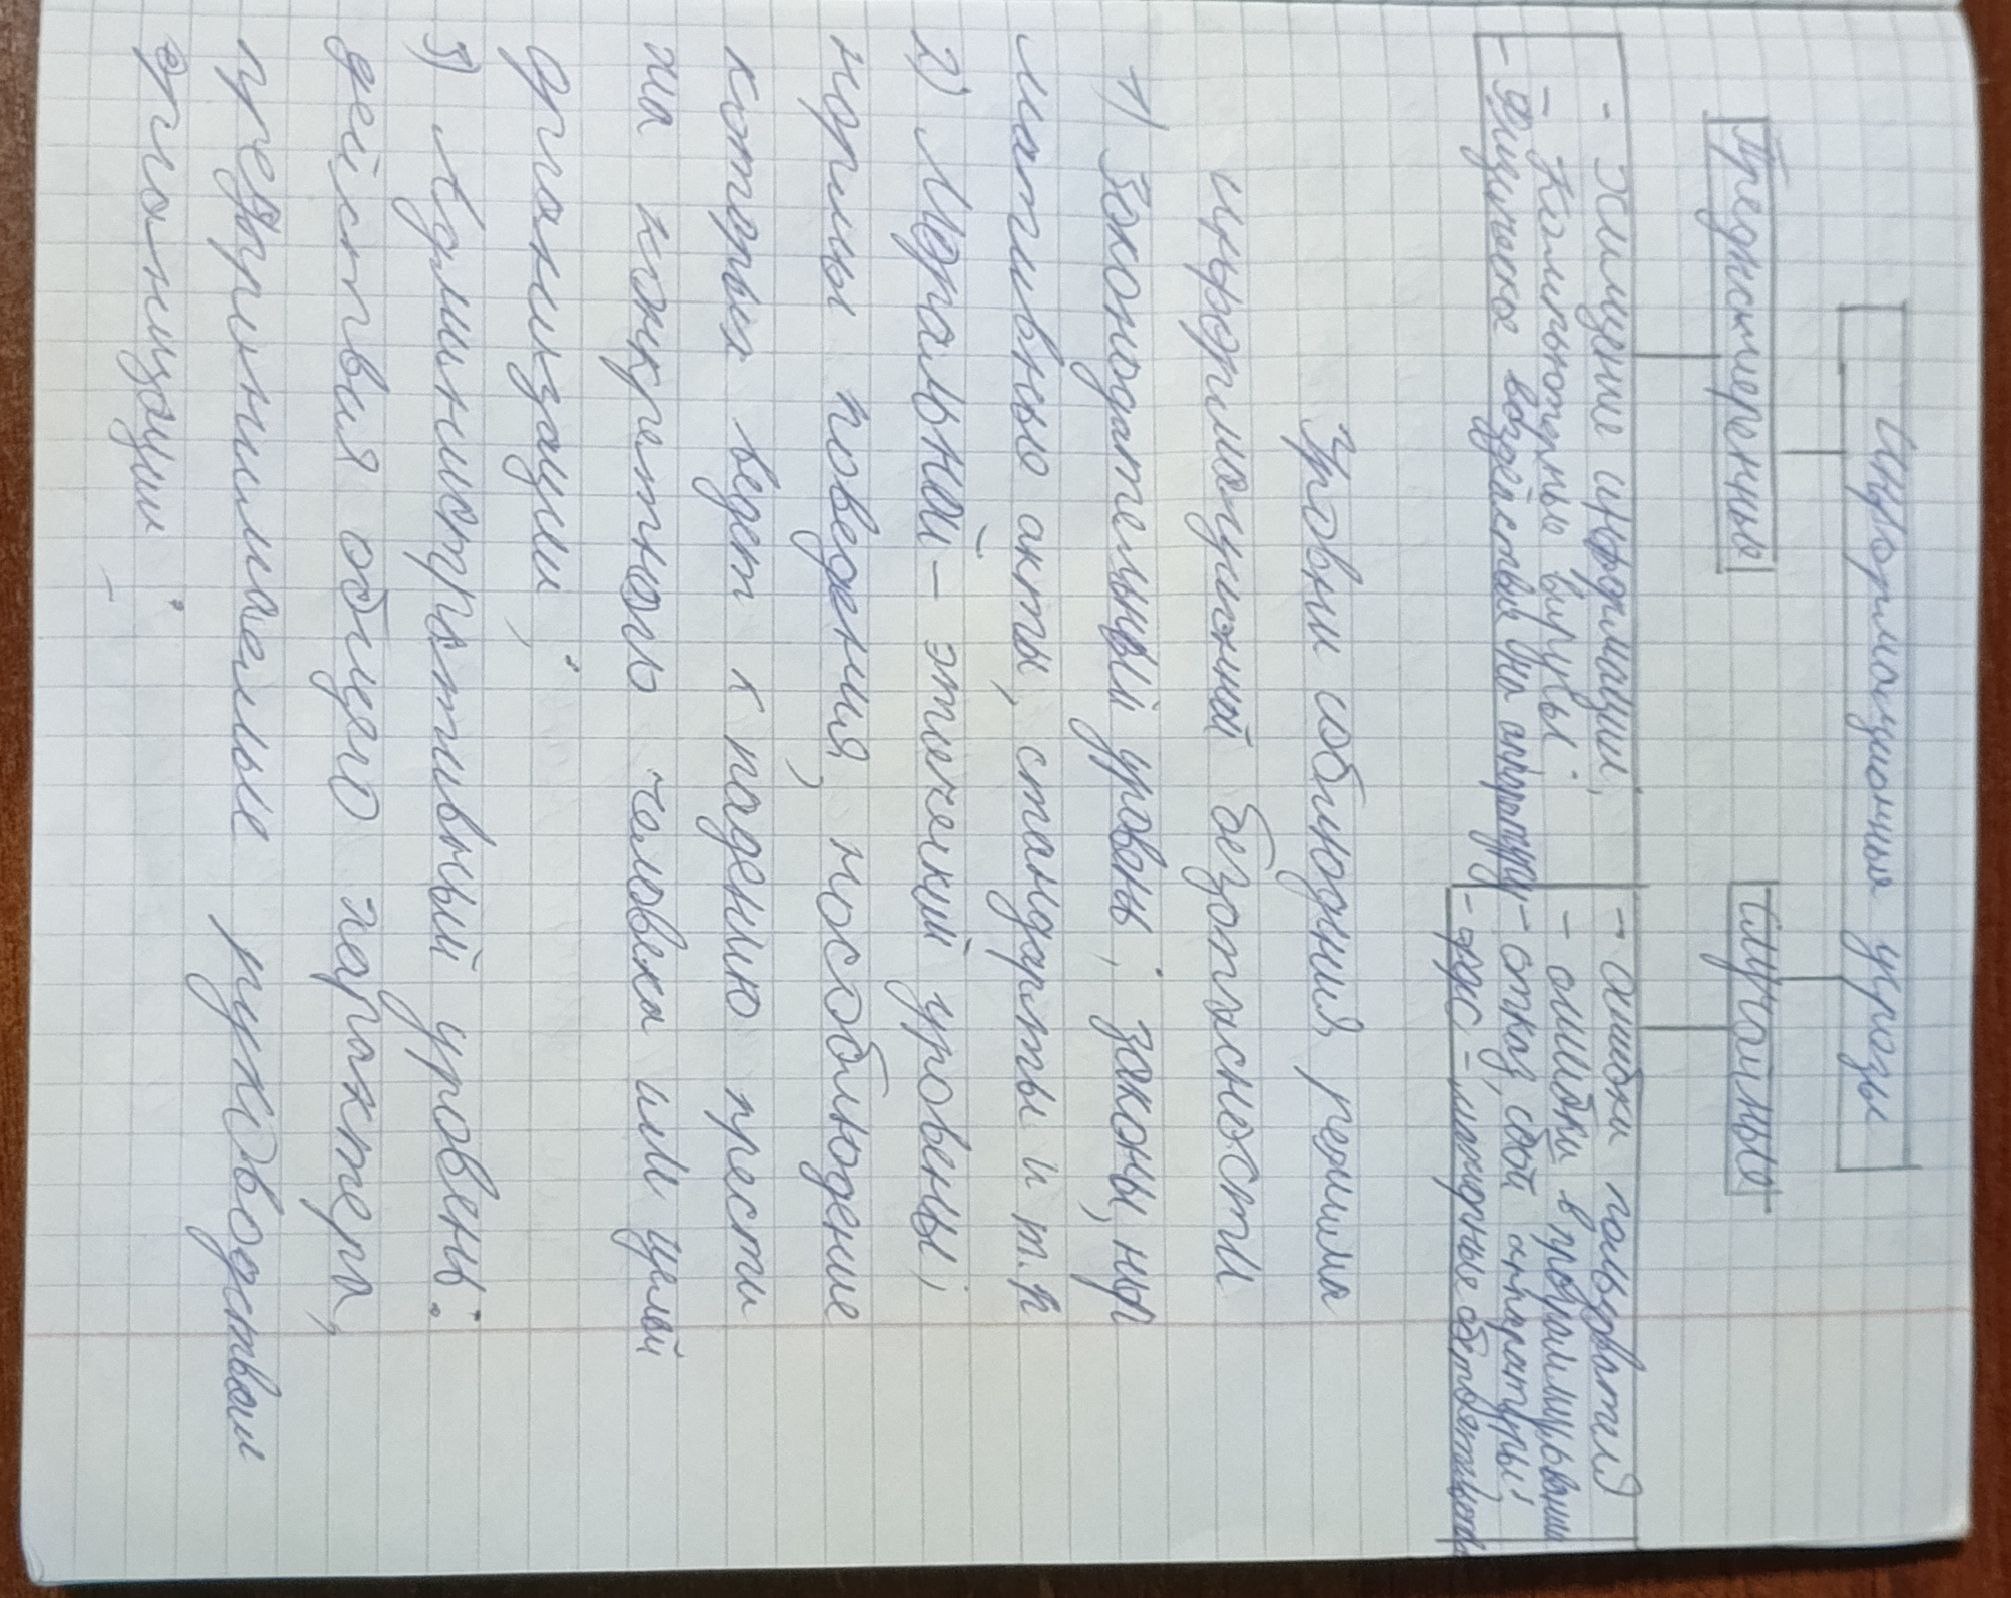 Информационные угрозы
Преднамеренные
Случайные
- Хищение информации;
- Компьютерные вирусы;
- Физическое воздействие на аппаратуру
- ошибки пользователя
- ошибки в программировании
- отказ, сбой аппаратуры;
- форс-мажорные обстоятельства
Уровни соблюдения режима
информационной безопасности
1) Законодательный уровень; законы, нор
мативные акты, стандарты и т.п
2) Морально - этический уровень;
нормы поведения, несоблюдение
которых ведет к падению прести
жа конкретного человека или целой
организации;
3) Административный уровень:
действия общего характера,
предпринимаемые руководством
организации;